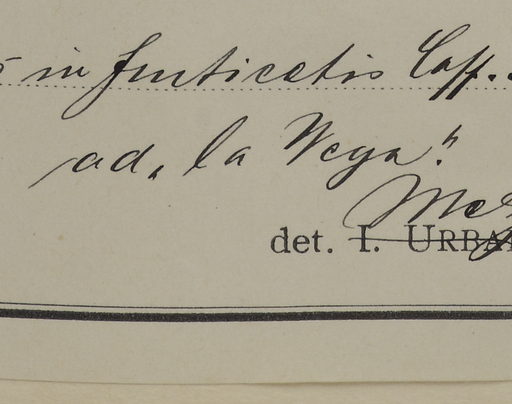 in fruticetis Caff.
ad „la Vega“.
det. I. URBA